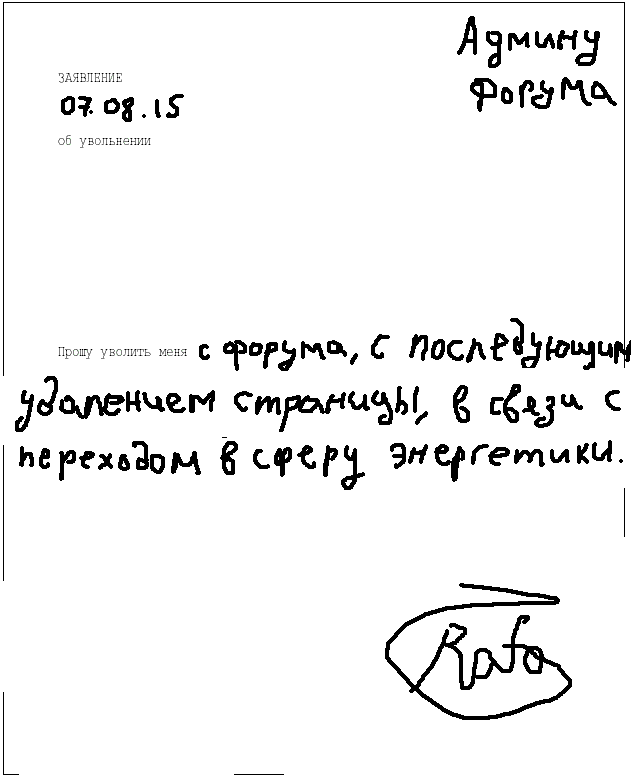 Админу
Форума
ЗАЯВЛЕНИЕ
07.08.15
об увольнении
Прошу уволить меня с форума, с последующим
удалением страницы, в связи с
переходом в сферу энергетики.
Rafo